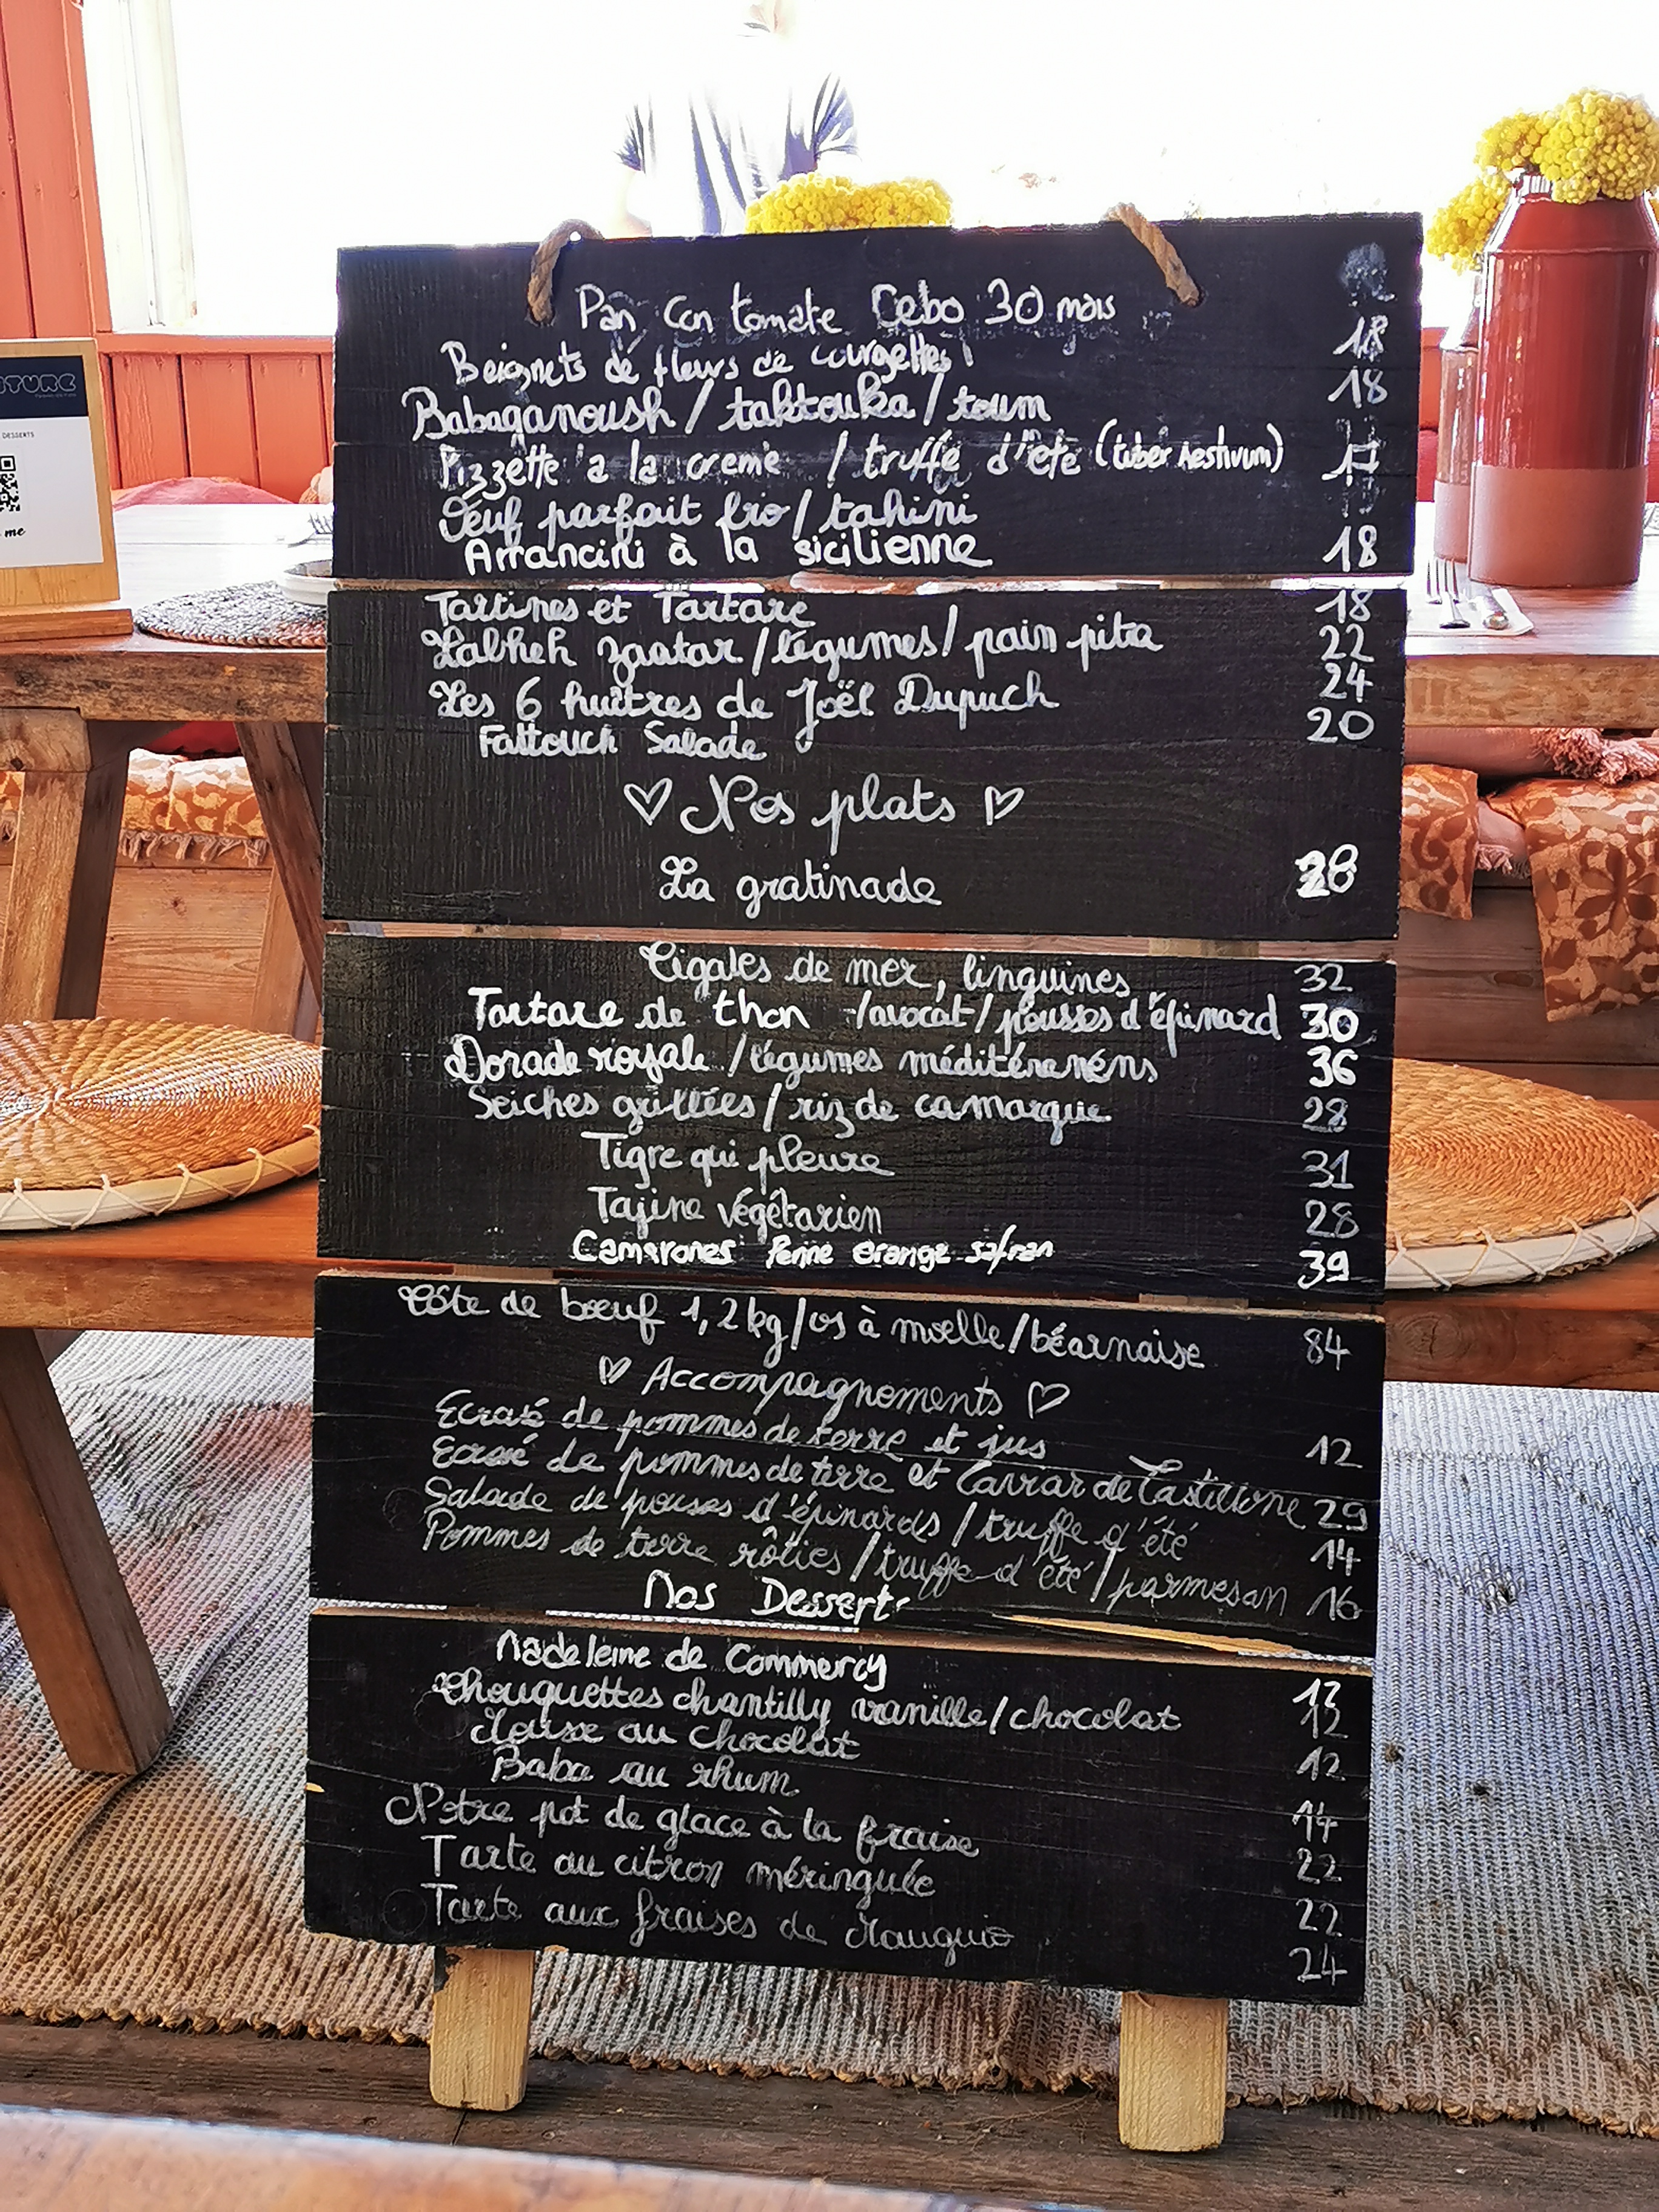 TURE
DESSERTS
me
Pan con tomate Cebo 30 mois
Beignets de fleurs de courgettes 18
Babaganoush / taktouka / toum 18
Pizzette à la crème / truffe d'été (tuber Aestivum) 17
Œuf parfait frio / tahini
Arrancini à la sicilienne 18
Tartines et Tartare 18
Labheh zaatar / légumes / pain pita 22
Les 6 huîtres de Joël Dupuch 24
Fattouch Salade 20
♡ Nos plats ♡
La gratinade 28
Cigales de mer, linguines 32
Tartare de thon /avocat/ pousses d'épinard 30
Dorade royale / légumes méditéranéns 36
Seiches grillées / riz de camargue 28
Tigre qui pleure 31
Tajine végétarien 28
Camarones Penne Orange safran 39
Côte de bœuf 1,2kg / os à moelle / béarnaise 84
♡ Accompagnements ♡
Ecrasé de pommes de terre et jus 12
Ecrasé de pommes de terre et Caviar de Castillone 29
Salade de pouses d'épinards / truffe d'été 14
Pommes de terre rôties / truffe d'été / parmesan 16
Nos Desserts
Madeleine de Commercy
Chouquettes chantilly vanille / chocolat 12
Mousse au chocolat 12
Baba au rhum
Notre pot de glace à la fraise 14
Tarte au citron méringuée 22
Tarte aux fraises de Mauguio 22
24